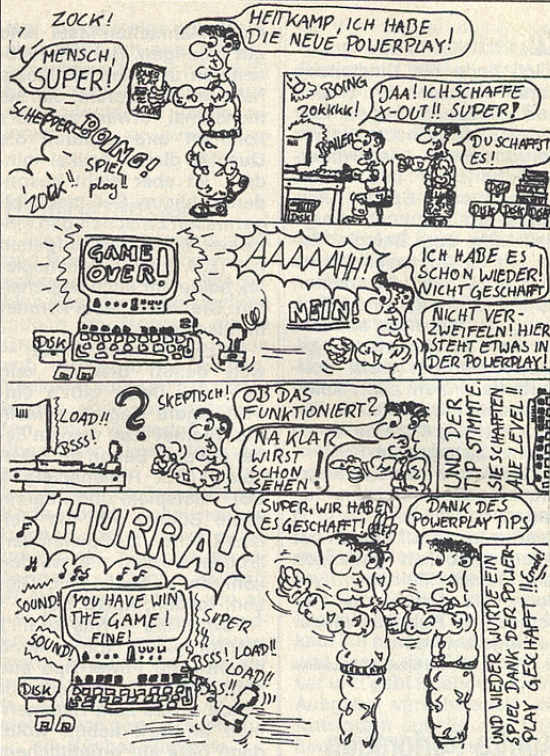 ZOCK!
MENSCH,
SUPER!
HEITKAMP, ICH HABE
DIE NEUE POWERPLAY!
SCHEPPER
BOING!
SPIEL
ploy!!
ZOCK!
BOING
ZOKKKK!
BALLER
DAA! ICH SCHAFFE
X-OUT!! SUPER!
DU SCHAFFST
ES!
DISK
DISK
DISK
GAME
OVER!
DISK
AAAAAHH!
NEIN!
ICH HABE ES
SCHON WIEDER!
NICHT GESCHAFT
NICHT VER-
ZWEIFELN! HIER
STEHT ETWAS IN
DER POWERPLAY!
LOAD!!
BSSS!
?
SKEPTISCH!
OB DAS
FUNKTIONIERT?
NA KLAR
WIRST
SCHON
SEHEN!
UND DER
TIP STIMMTE.
SIE SCHAFFTEN
ALLE LEVEL!!
HURRA!
SOUND!
SOUND!
YOU HAVE WIN
THE GAME!
FINE!
SUPER
BSSS! LOAD!!
LOAD!!
BSS!!
DISK
SUPER, WIR HABEN
ES GESCHAFFT!
DANK DES
POWERPLAY TIPS
UND WIEDER WURDE EIN
SPIEL DANK DER POWER-
PLAY GESCHAFFT!! Ende!